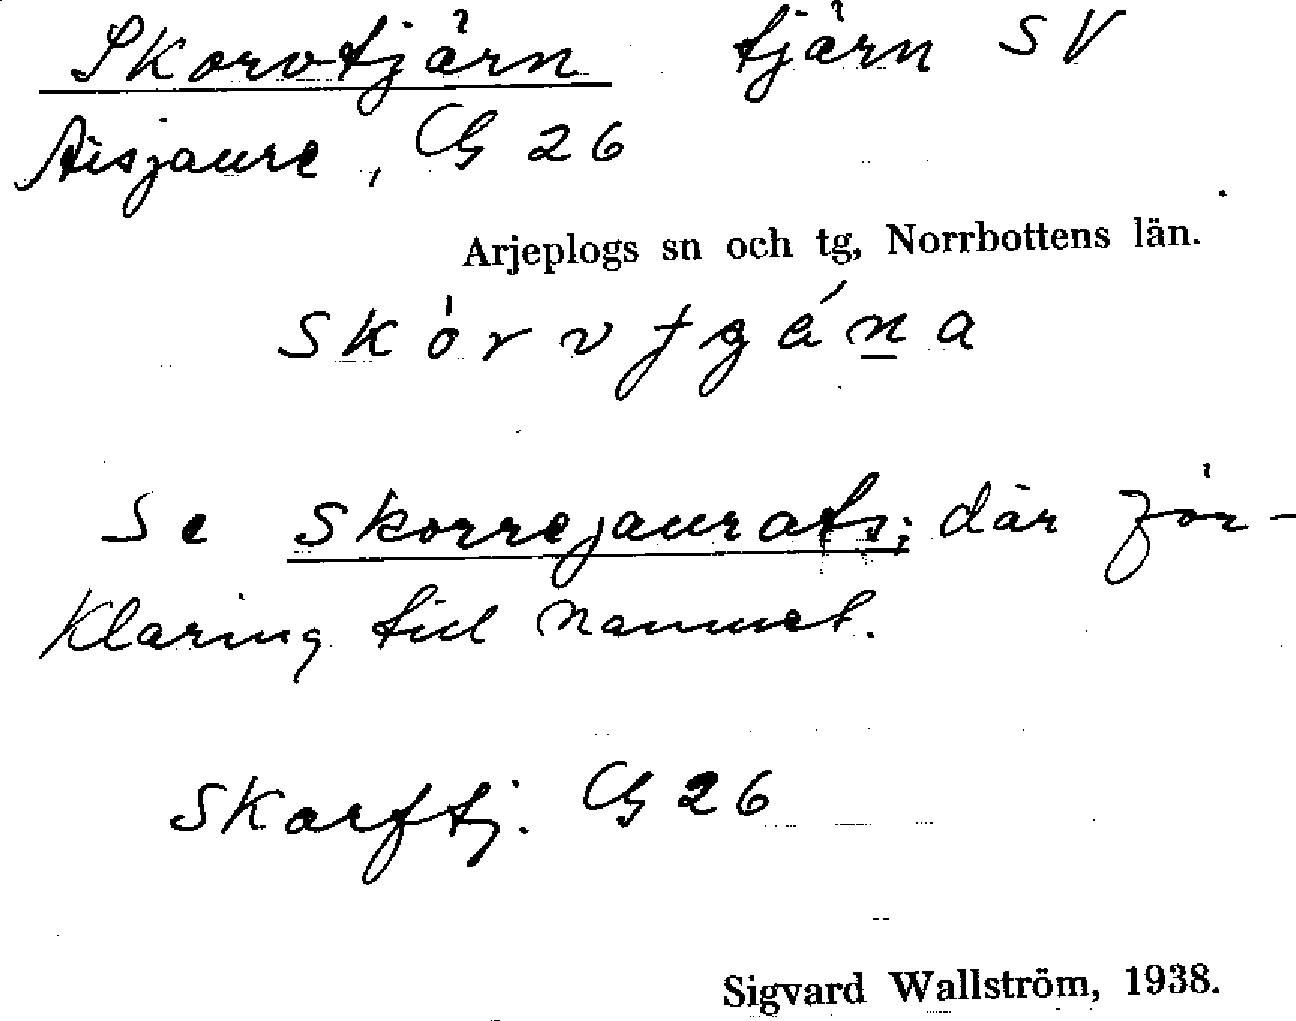 Skorvtjärn tjärn SV
Aisjaure, G 26
Arjeplogs sn och tg, Norrbottens län.
Se Skorrejaurats; där för-
klaring till namnet.
Skarftj. G 26
Sigvard Wallström, 1938.